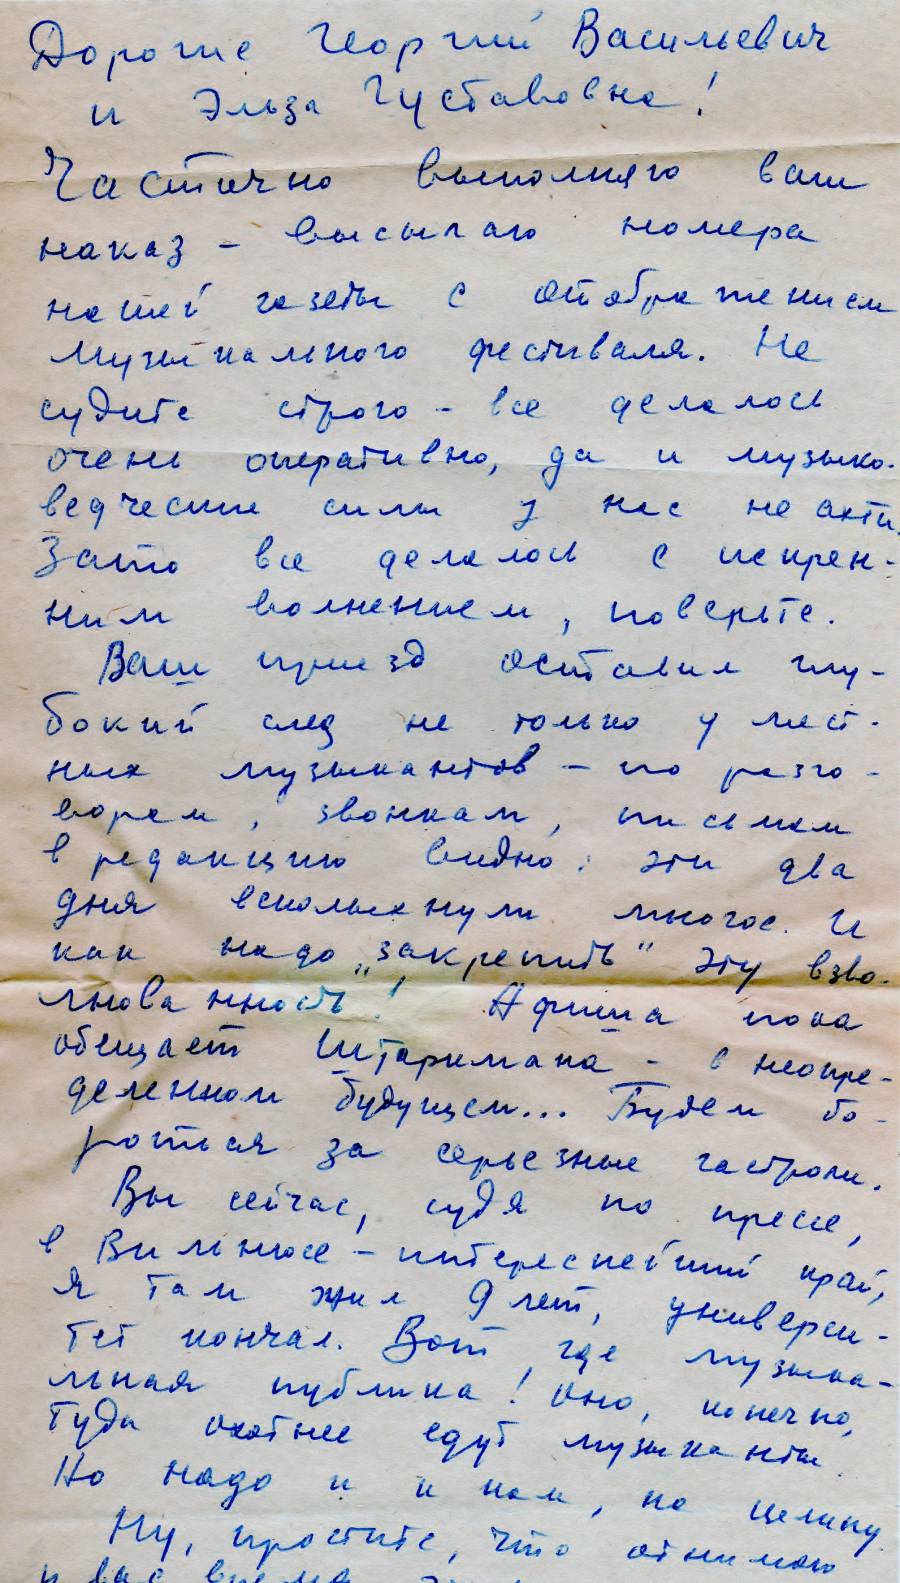 Дорогие Георгий Васильевич
и Эльза Густавовна!
Частично выполняю ваш
наказ – высылаю номера
нашей газеты с отображением
музыкального фестиваля. Не
судите строго – все делалось
очень оперативно, да и музыко-
ведческие силы у нас не ахти.
Зато все делалось с искрен-
ним волнением, поверьте.
Ваш приезд оставил глу-
бокий след не только у мест-
ных музыкантов – по разго-
ворам, звонкам, письмам
в редакцию видно: эти два
дня всколыхнули многое. И
как надо „закрепить" эту взво-
лнованность! Афиша пока
обещает Штаркмана – в неопре-
деленном будущем... Будем бо-
роться за серьезные гастроли.
Вы сейчас, судя по прессе,
в Вильнюсе – интереснейший край,
я там жил 9 лет, универси-
тет кончал. Вот где музыка-
льная публика! Оно, конечно,
туда охотнее едут музыканты.
Но надо и к нам, на целину.
Ну, простите, что отнимаю
у вас время.